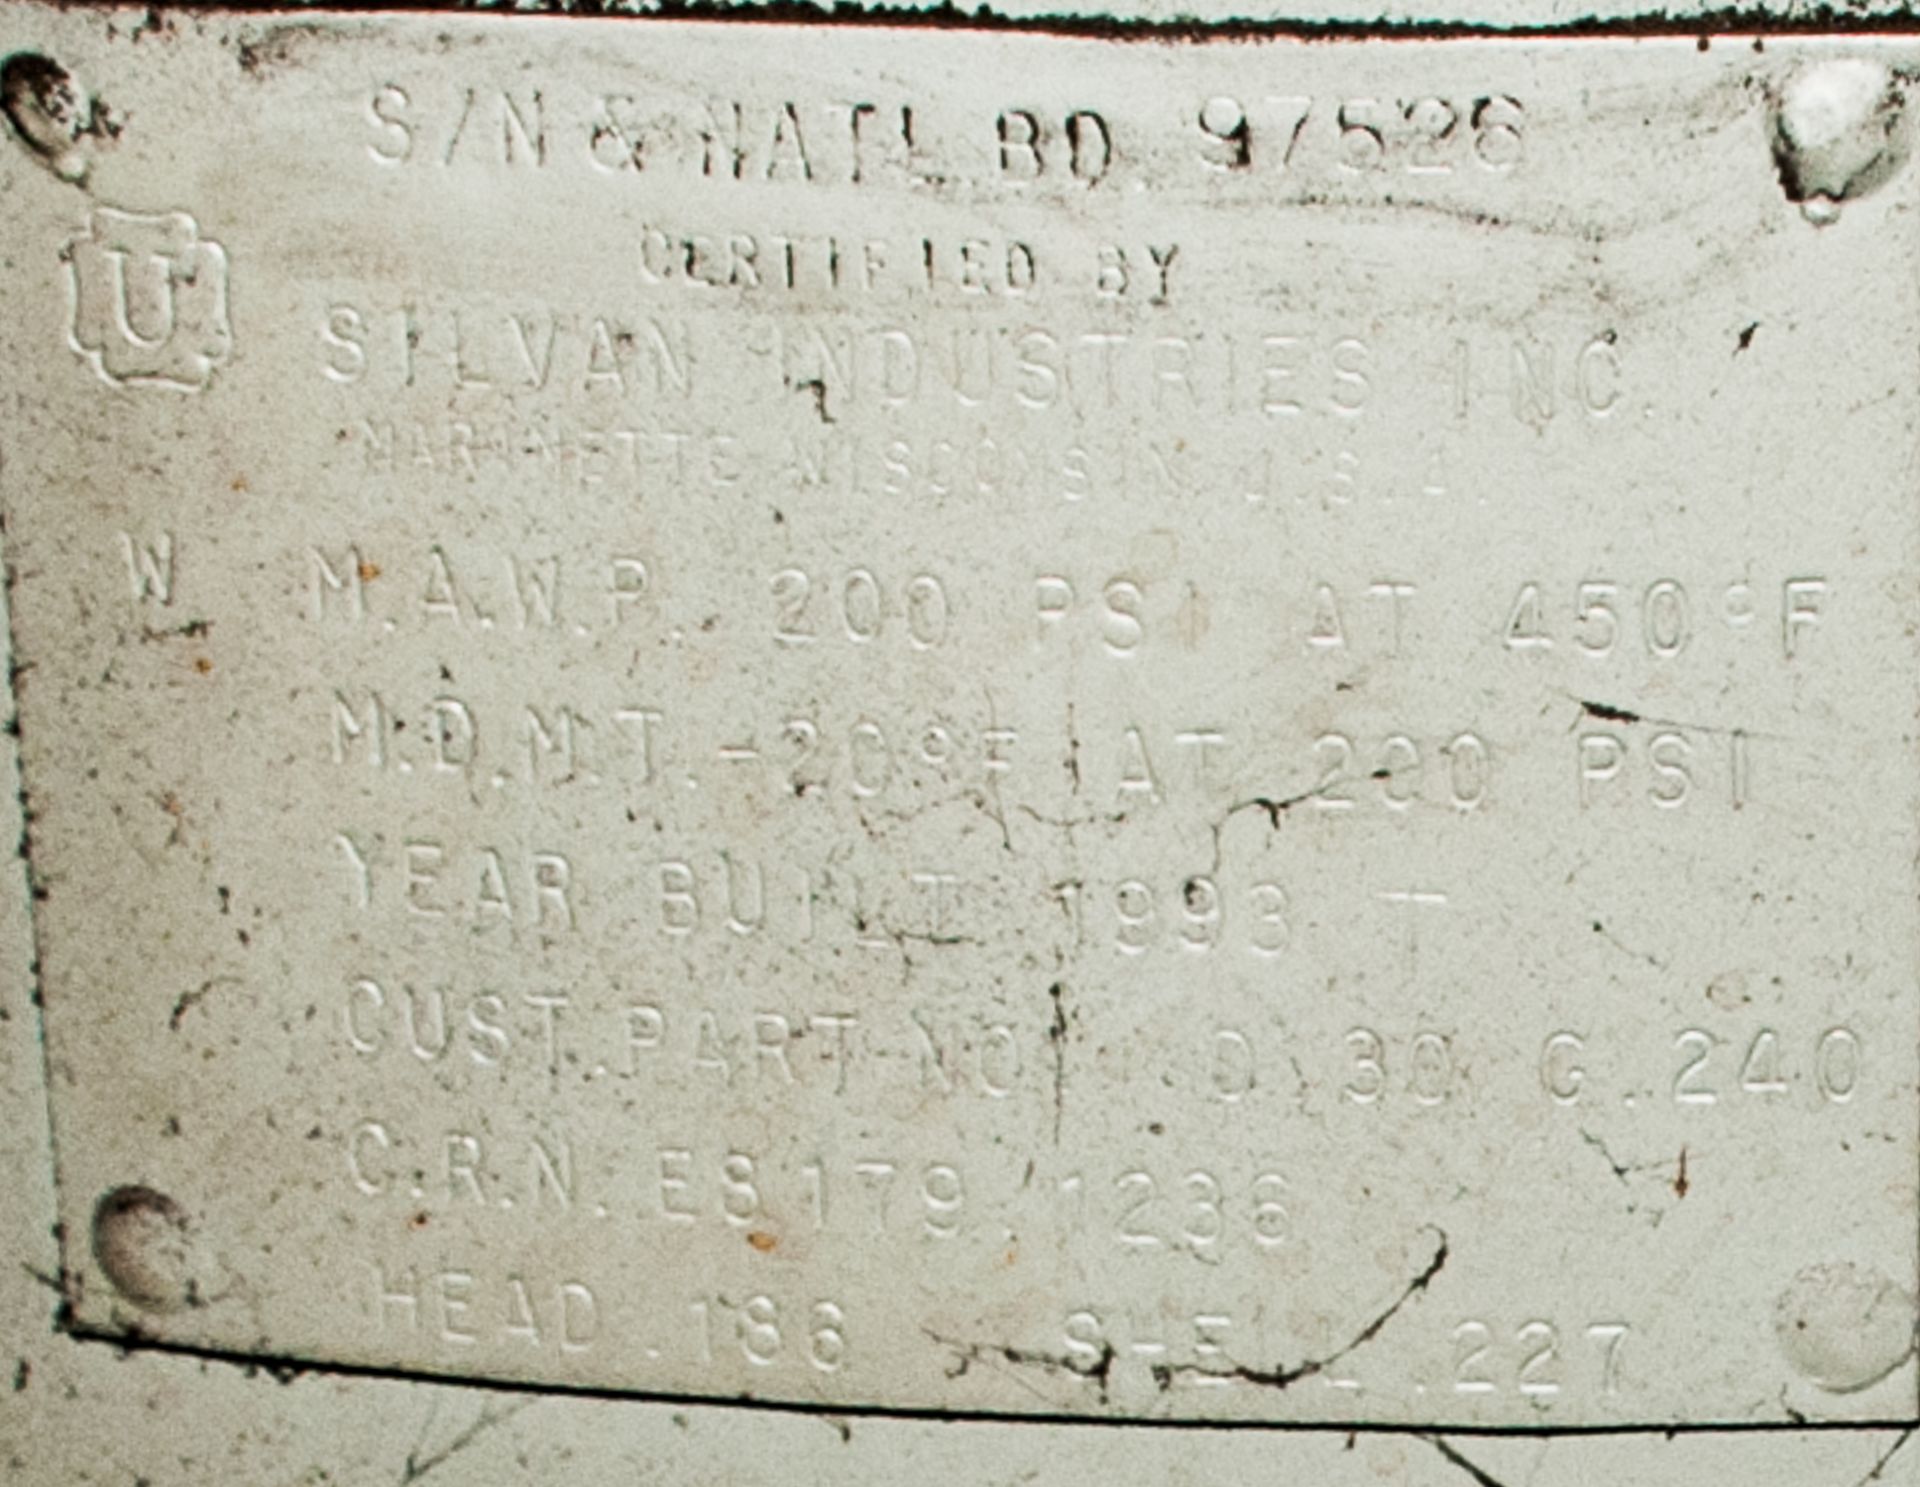 S/N & NAT'L BD. 97526
CERTIFIED BY
U
SILVAN INDUSTRIES INC.
MARINETTE WISCONSIN U.S.A.
W M.A.W.P. 200 PSI AT 450°F
M.D.M.T. -20°F AT 200 PSI
YEAR BUILT 1993 T
CUST. PART NO. D.30 G.240
C.R.N. E8179.1236
HEAD .186 SHELL .227